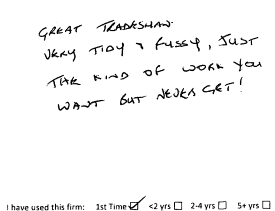 GREAT TRADESMAN.
VERY TIDY & FUSSY, JUST
THE KIND OF WORK YOU
WANT BUT NEVER GET!
I have used this firm: 1st Time ☑ <2 yrs ☐ 2-4 yrs ☐ 5+ yrs ☐